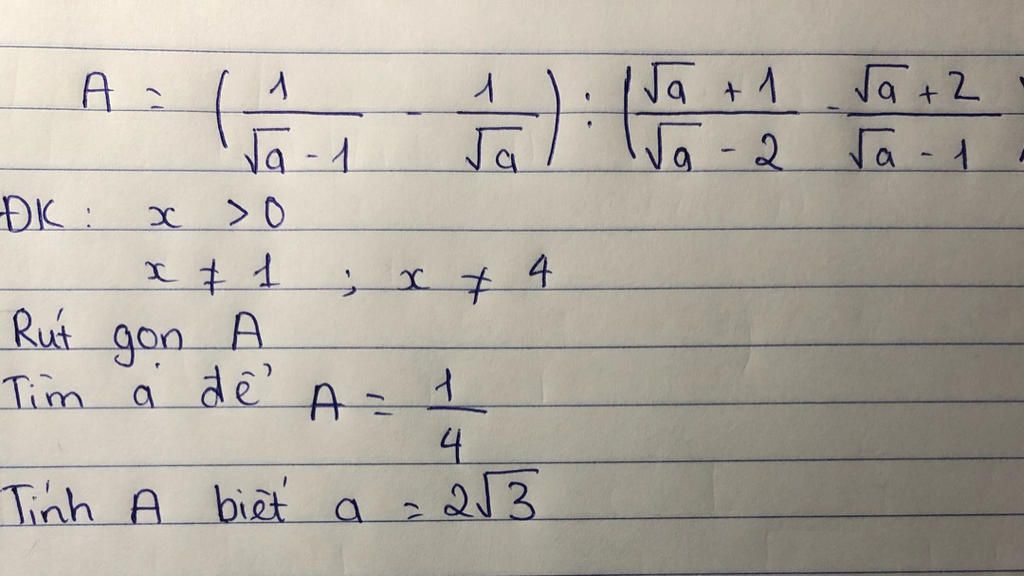 A = (1/(√a - 1) - 1/√a) : ((√a + 1)/(√a - 2) - (√a + 2)/(√a - 1))
ĐK : x > 0
x ≠ 1 ; x ≠ 4
Rút gọn A
Tìm a để A = 1/4
Tính A biết a = 2√3